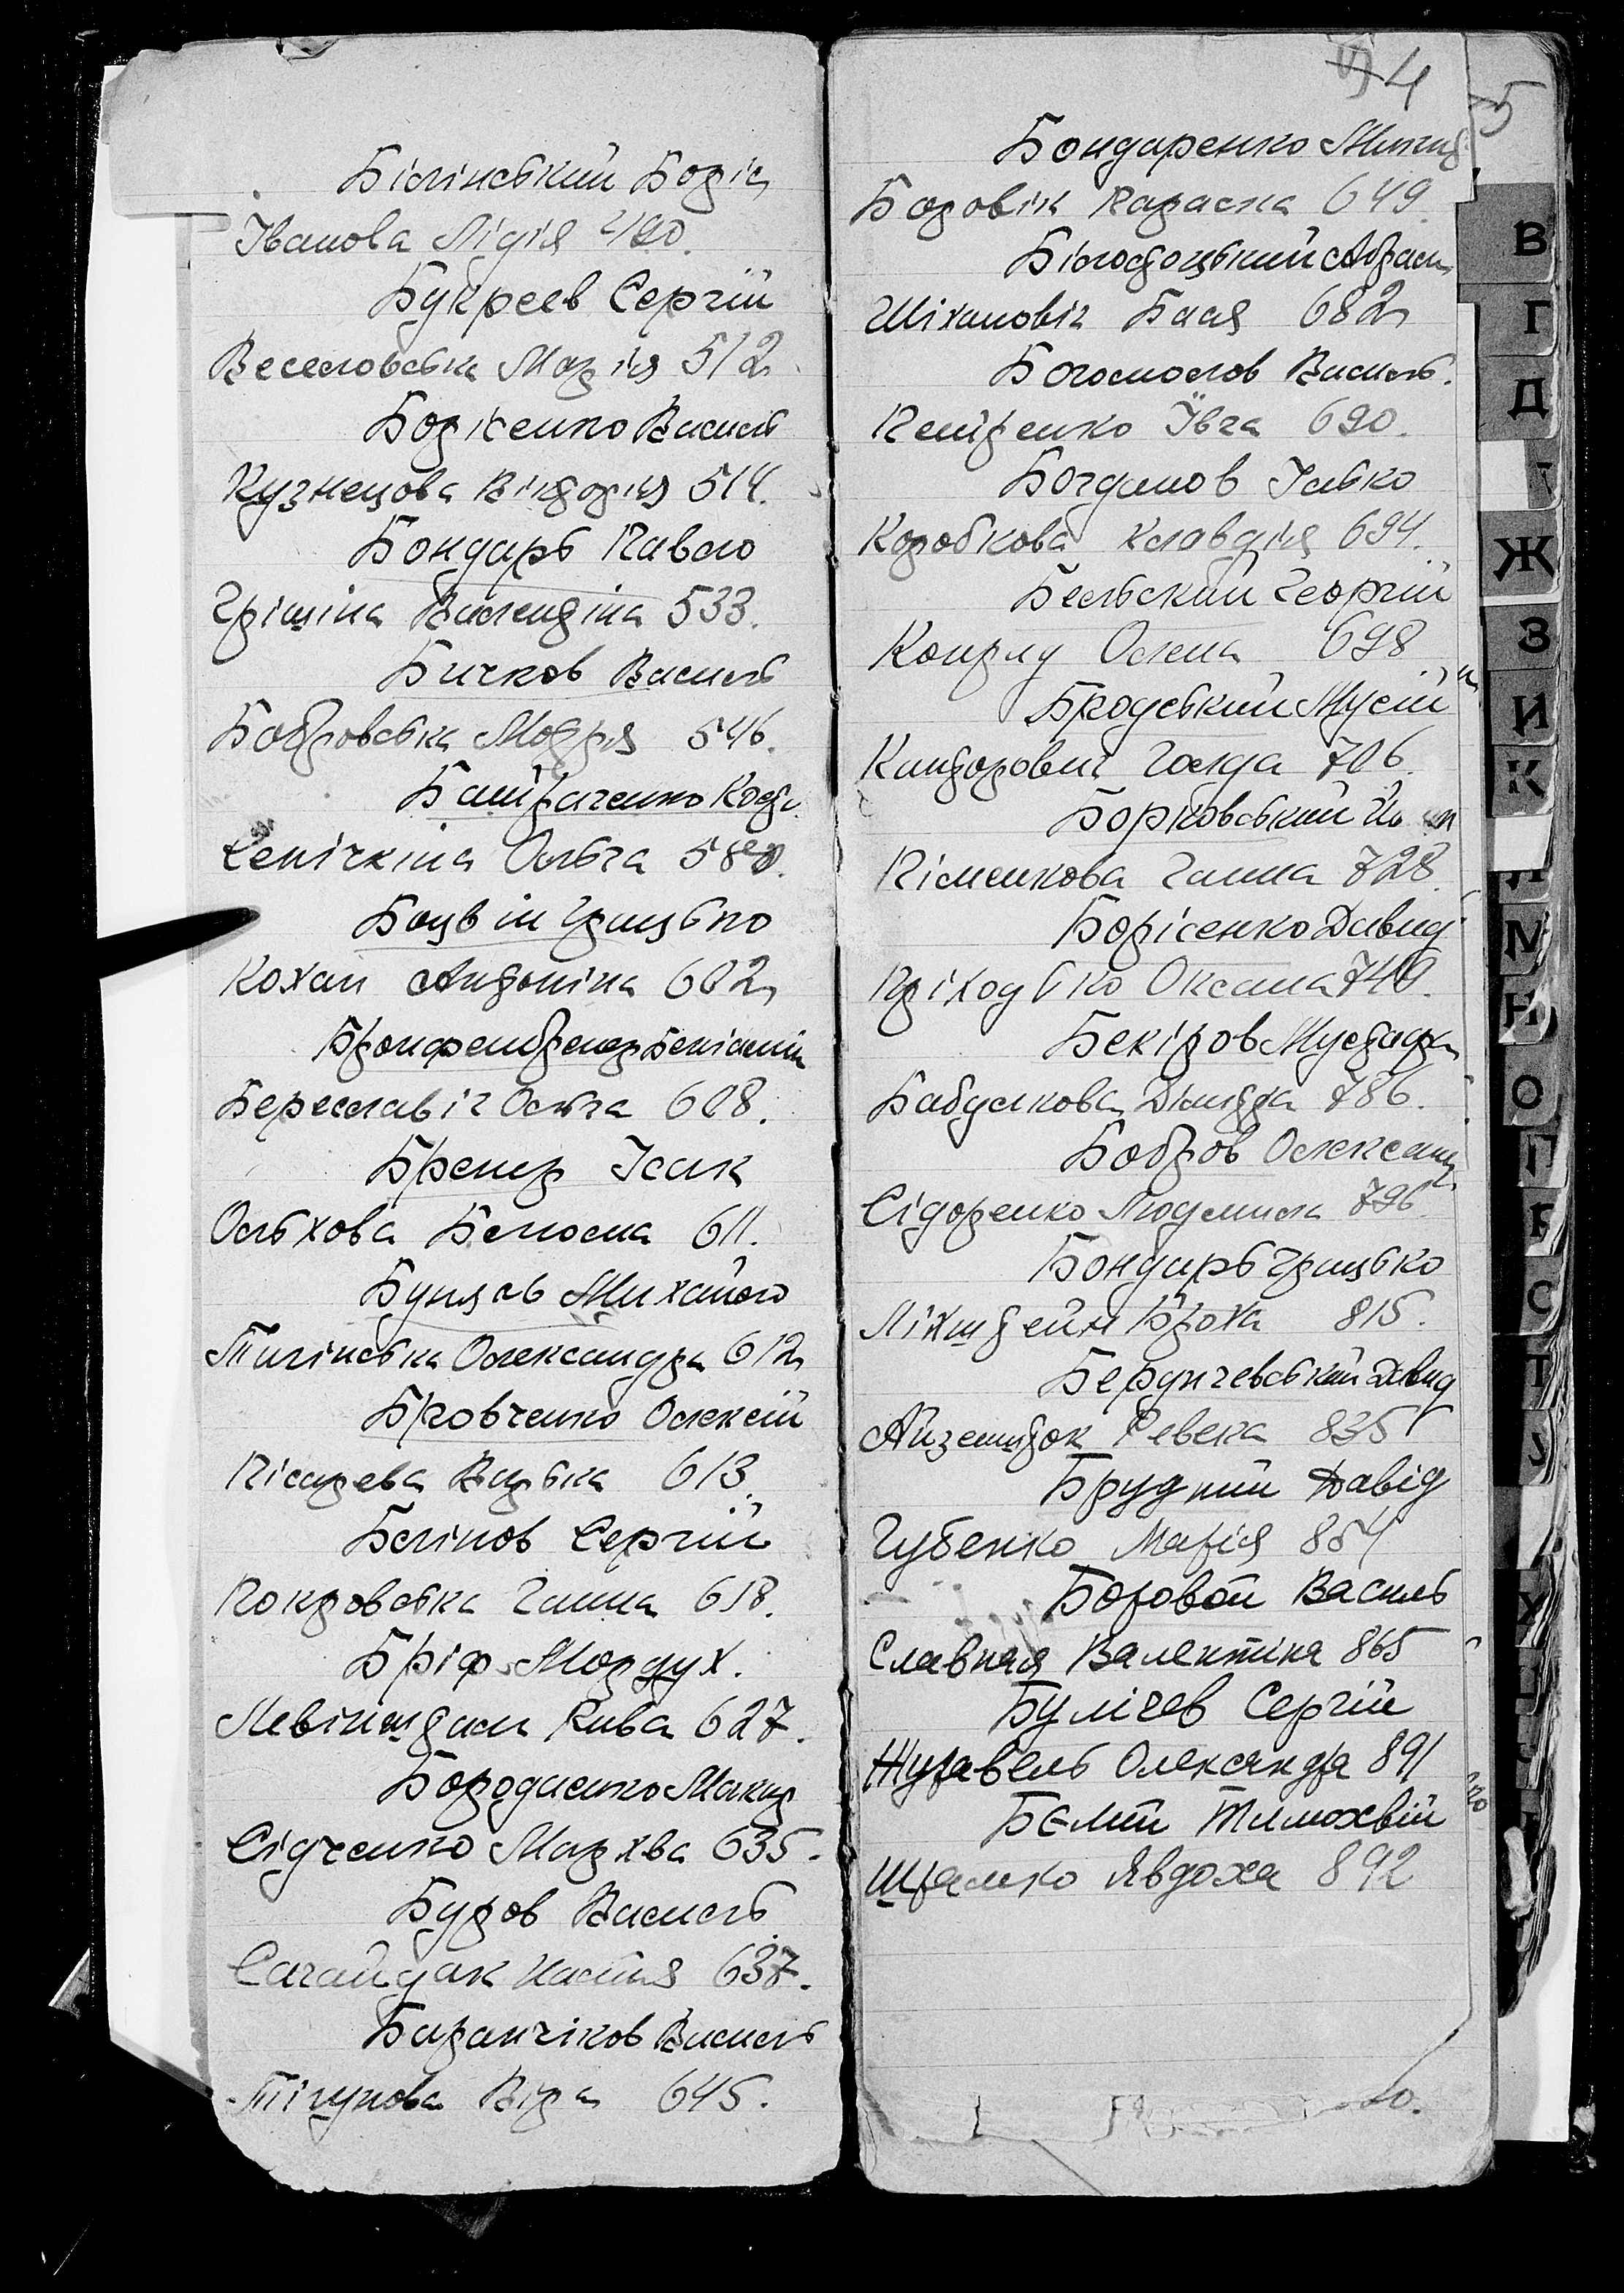 Білінський Борис
Іванова Лідія 490.
Букреев Сергій
Веселовська Марія 512
Борисенко Василь
Кузнецова Вікторія 514.
Бондарь Павло
Грішіна Валентіна 533.
Бичков Василь
Бобровська Мотря 546.
Ольга
Боцвін Грицько
Кохан Антоніна 602
Береславіч Ольга 608.
Бренер Ісак
Ольхова 611.
Буняєв Михайло
Олександра 612
Бровченко Олексій
Пісарева 613.
Блінов Сергій
Покровська Ганна 618.
Бріф Мордух.
Левінштам Рива 627.
Бородненко Макар
Сідченко Мархва 635.
Буров Василь
Сагайдак Настя 637.
Баранчіков Василь
Тігунова Віра 645.
4
5
Бондаренко
Боровік Параска 649.
Білоцький Абрам
Шіханович Бася 682
Богомолов Василь.
Петренко Ївга 690.
Богданов Ілько
Коробкова Клавдія 694.
Бельский Георгій
Конрад Олена 698
Бродський Мусій
Канторович Голда 706.
Борковський
Піменкова Ганна 728.
Борісенко Давид
Пріходько Оксана 740.
Бекіров Мустафа
786.
Бобров Олександ
Сідоренко Людмила 796.
Бондарь Грицько
Ліхштейн Броха 815.
Бердичевський Давид
Айзеншток Ревека 835
Брудний Давід
Губенко Марія 854
Боровой Василь
Славная Валентіна 865
Булічев Сергій
Журавель Олександра 891
Бєлий Тимохвій
Шрамко Явдоха 892
В
Г
Д
Ж
З
И
К
Л
М
Н
О
П
Р
С
Т
У
Х